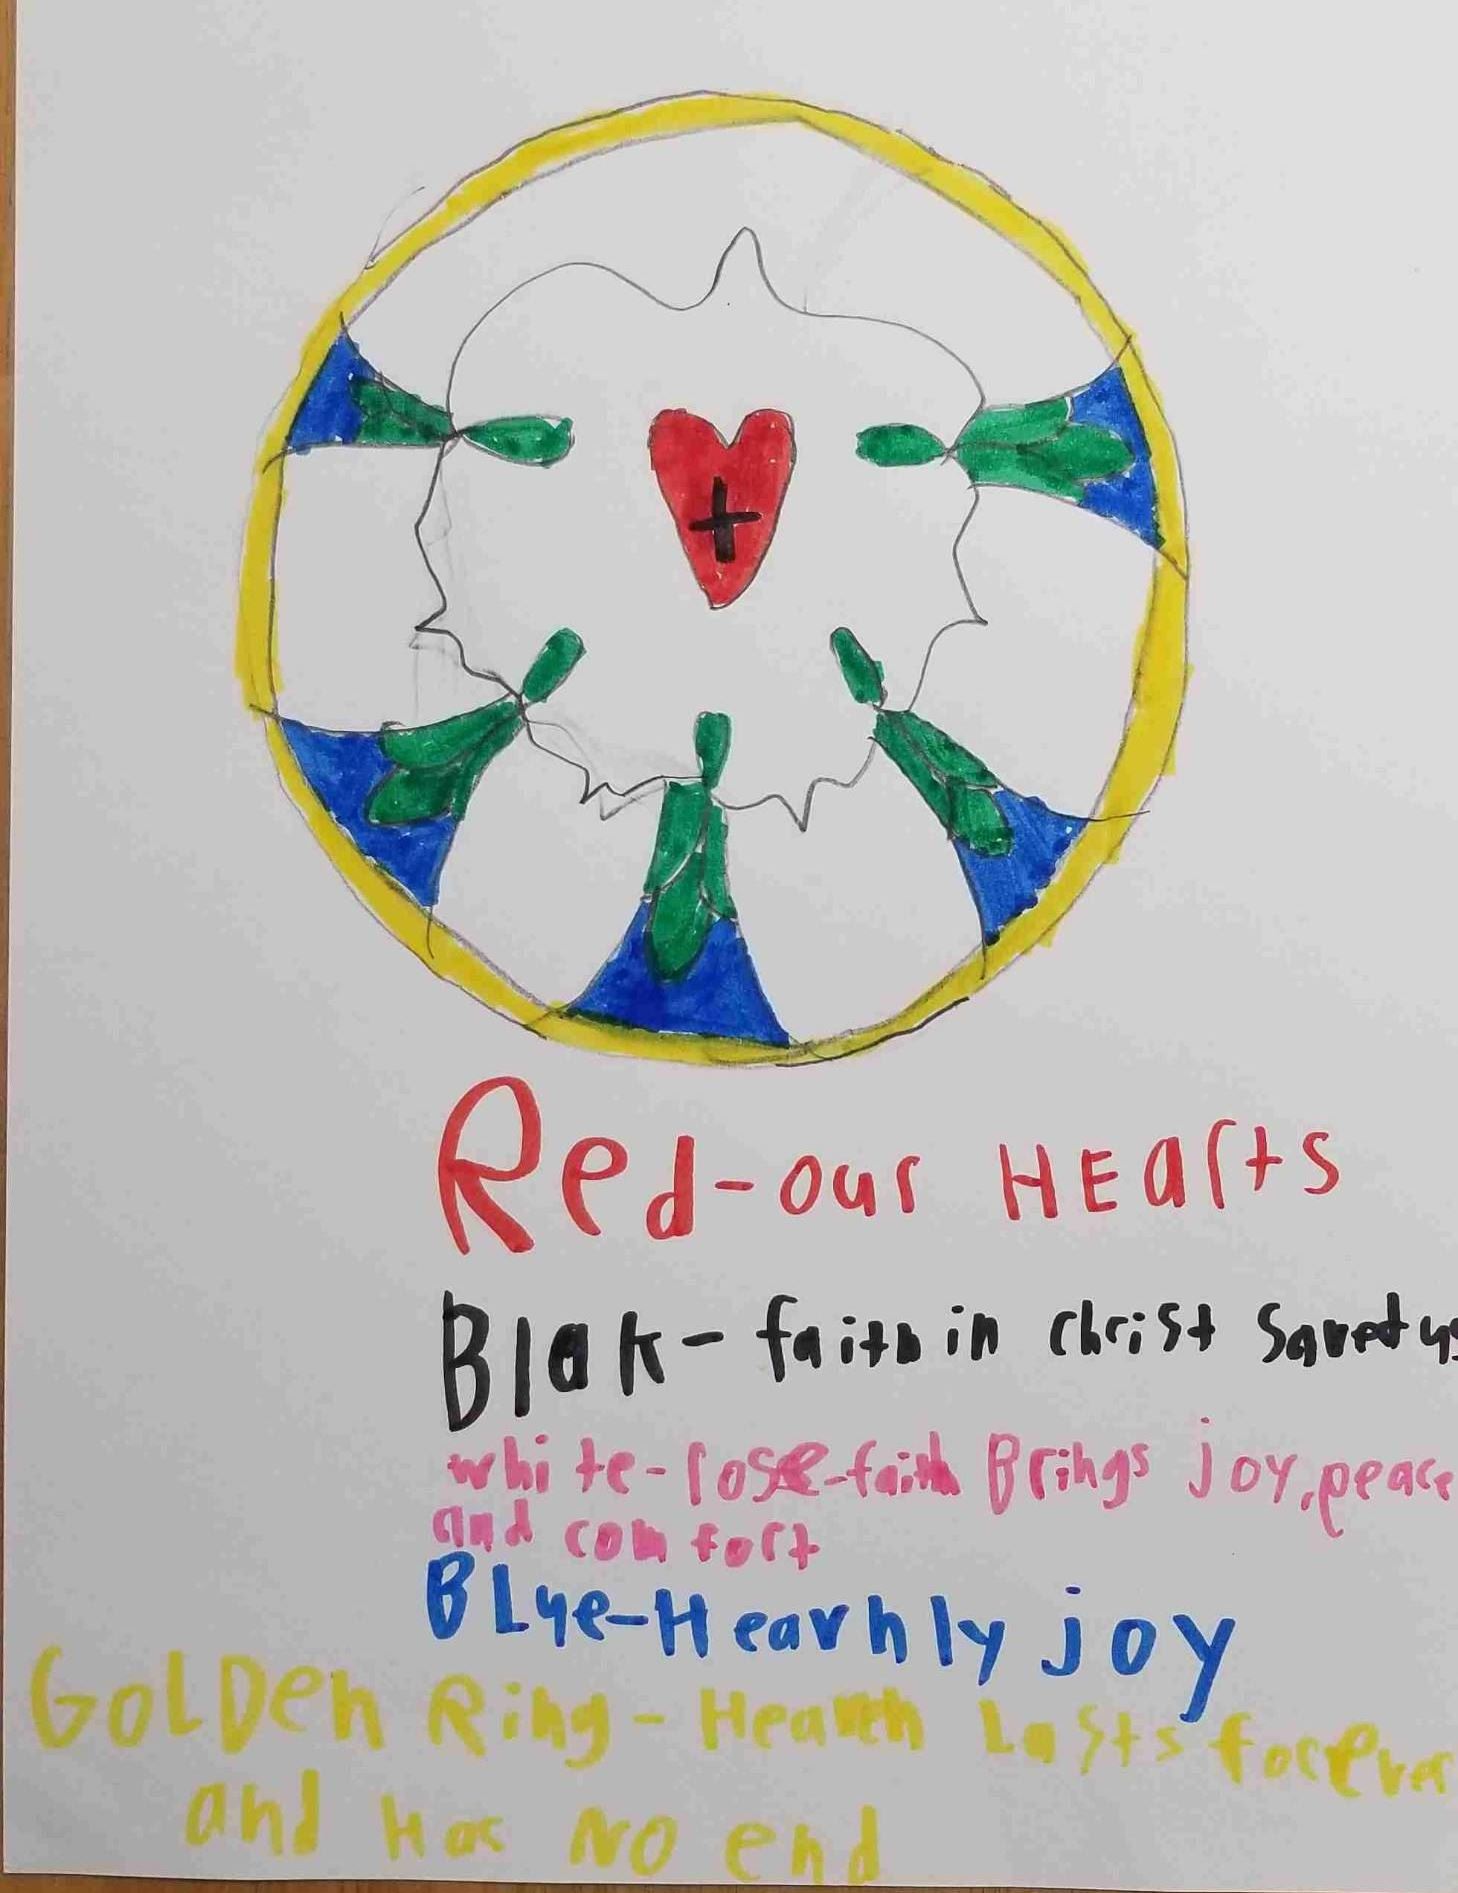 Red-our HEarts
Blak-faith in christ Saved us
white-rose-faith Brings joy, peace
and comfort
BLue-Heavnly joy
GOLDen Ring-Heaven Lasts forever
and Has NO end